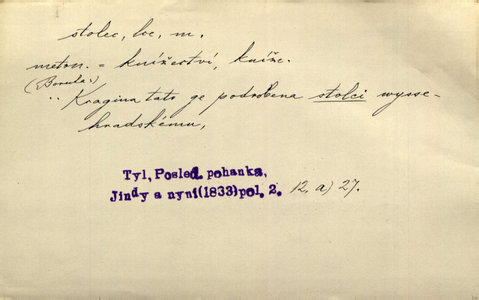 stolec, lce, m.
meton. = knížectví, kníže.
(Borula:)
Kragina tato ge podrobena stolci wysse-
hradskému,
Tyl, Posled. pohanka,
Jindy a nyní(1833)pol. 2. 12, a) 27.